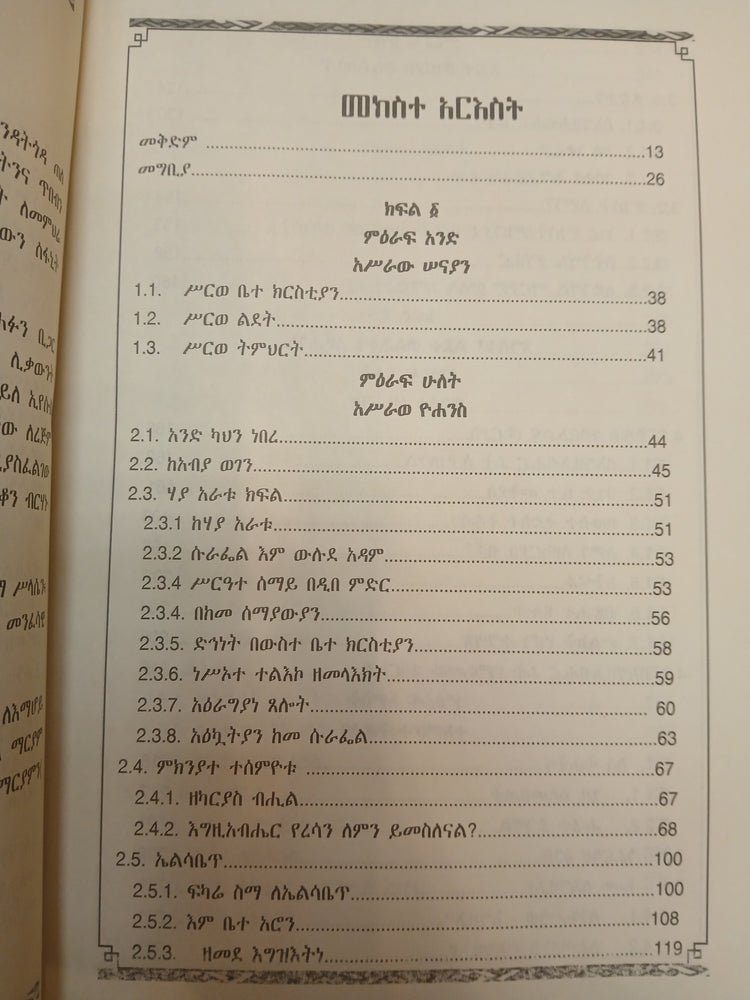 መክስተ አርእስት
መቅድም ........ 13
መግቢያ ........ 26
ክፍል ፩
ምዕራፍ አንድ
አሥራው ሠናያን
1.1. ሥርወ ቤተ ክርስቲያን ........ 38
1.2. ሥርወ ልደት ........ 38
1.3. ሥርወ ትምህርት ........ 41
ምዕራፍ ሁለት
አሥራወ ዮሐንስ
2.1. አንድ ካህን ነበረ ........ 44
2.2. ከአብያ ወገን ........ 45
2.3. ሃያ አራቱ ክፍል ........ 51
2.3.1 ከሃያ አራቱ ........ 51
2.3.2 ሱራፌል እም ውሉደ አዳም ........ 53
2.3.4 ሥርዓተ ሰማይ በዲበ ምድር ........ 53
2.3.4. በከመ ሰማያውያን ........ 56
2.3.5. ድኅነት በውስተ ቤተ ክርስቲያን ........ 58
2.3.6. ነሥኦተ ተልእኮ ዘመላእክት ........ 59
2.3.7. አዕራግያነ ጸሎት ........ 60
2.3.8. አዕኳትያን ከመ ሱራፌል ........ 63
2.4. ምክንያተ ተሰምዮቱ ........ 67
2.4.1. ዘካርያስ ብሒል ........ 67
2.4.2. እግዚአብሔር የረሳን ለምን ይመስለናል? ........ 68
2.5. ኤልሳቤጥ ........ 100
2.5.1. ፍካሬ ስማ ለኤልሳቤጥ ........ 100
2.5.2. እም ቤተ አሮን ........ 108
2.5.3. ዘመደ እግዝእትነ ........ 119